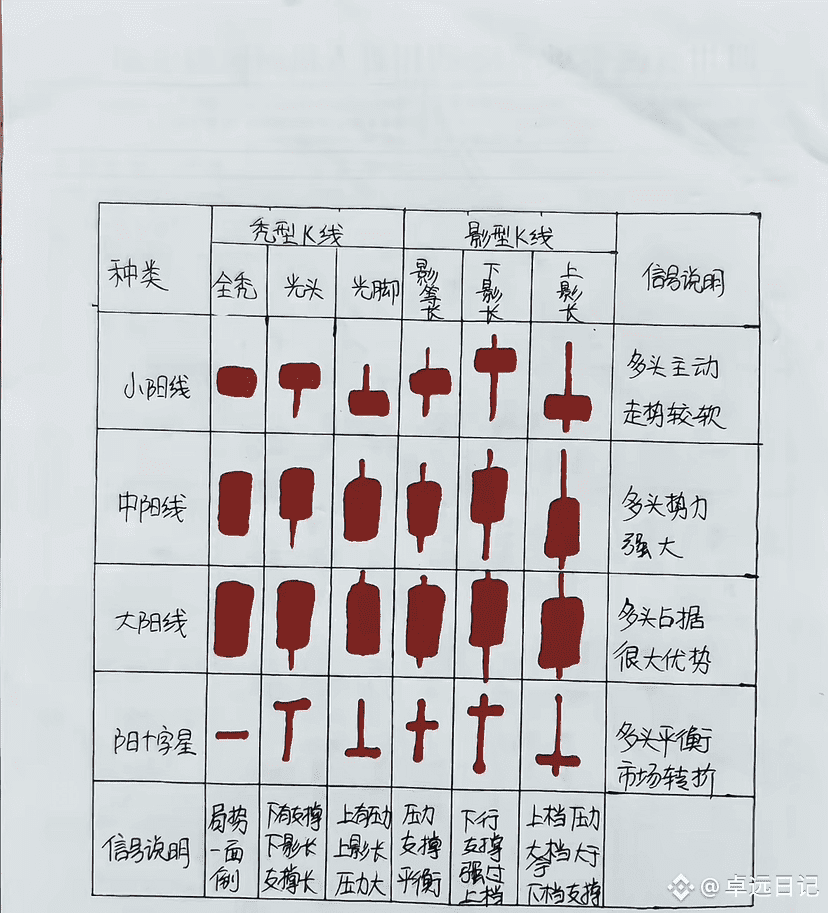 种类
秃型K线
影型K线
信号说明
全秃
光头
光脚
影等长
下影长
上影长
小阳线
多头主动
走势较软
中阳线
多头势力
强大
大阳线
多头占据
很大优势
阳十字星
多头平衡
市场转折
信号说明
局势
一面
倒
下有支撑
下影长
支撑长
上有压力
上影长
压力大
压力
支撑
平衡
下行
支撑
强过
上档
上档压力
大于
下档支撑
@卓远日记